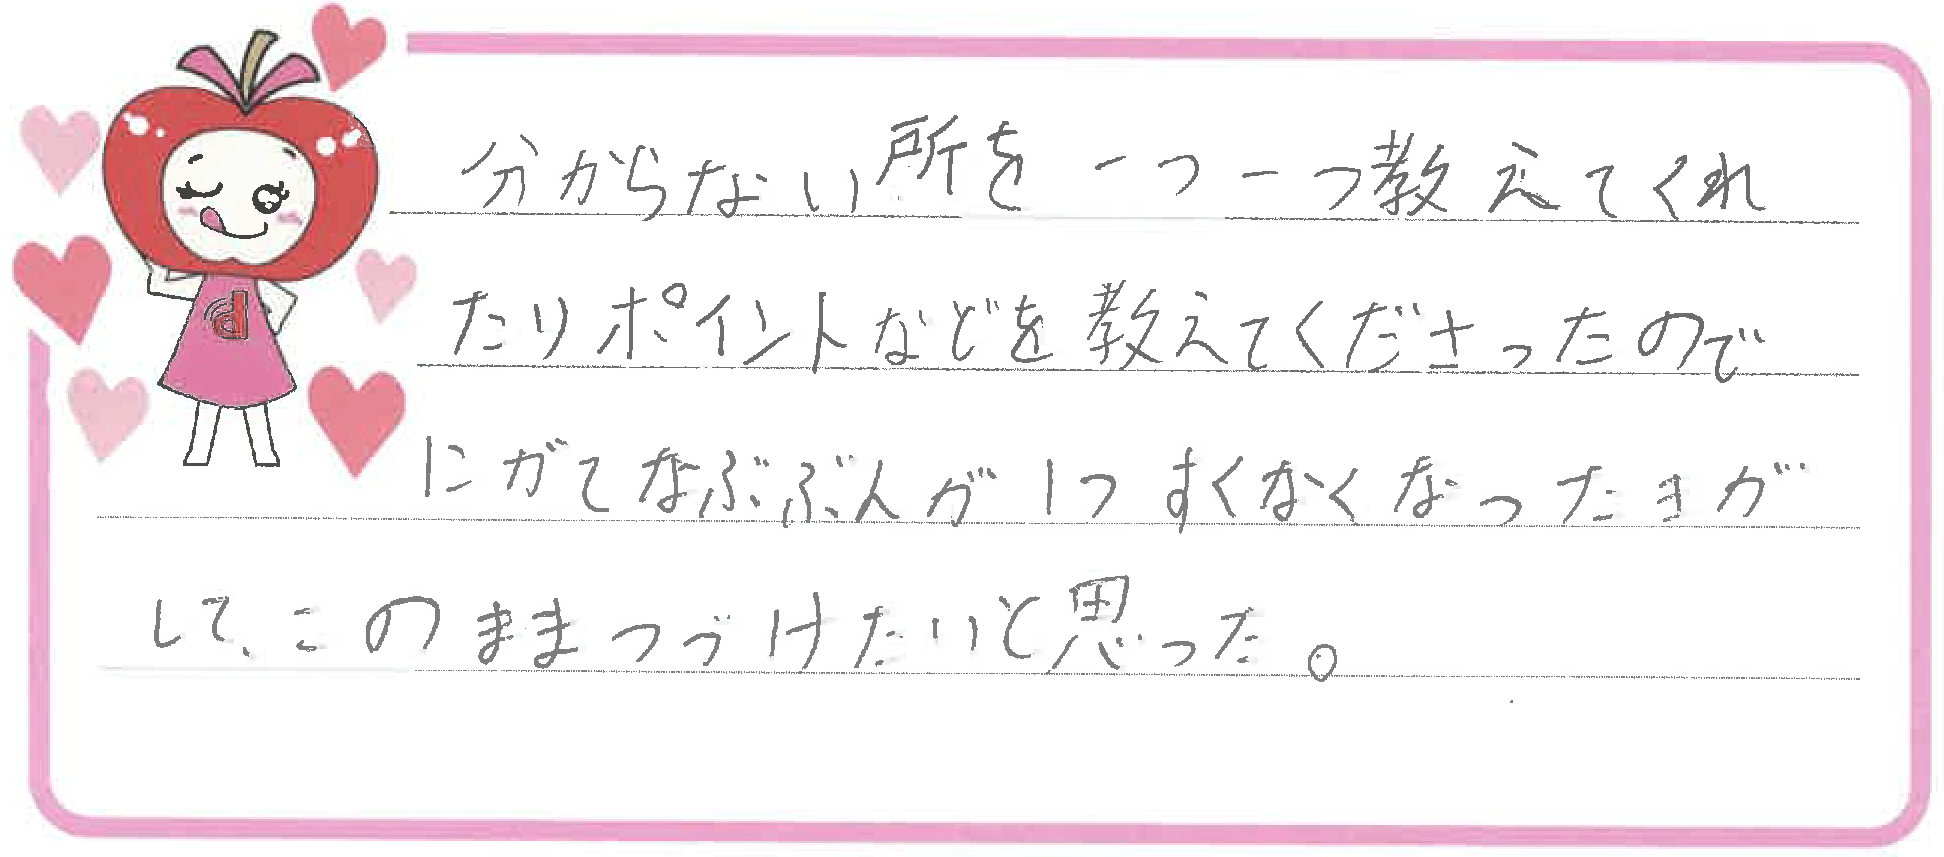 分からない所を一つ一つ教えてくれ
たりポイントなどを教えてくださったので
にがてなぶぶんが1つすくなくなったきが
して、このままつづけたいと思った。